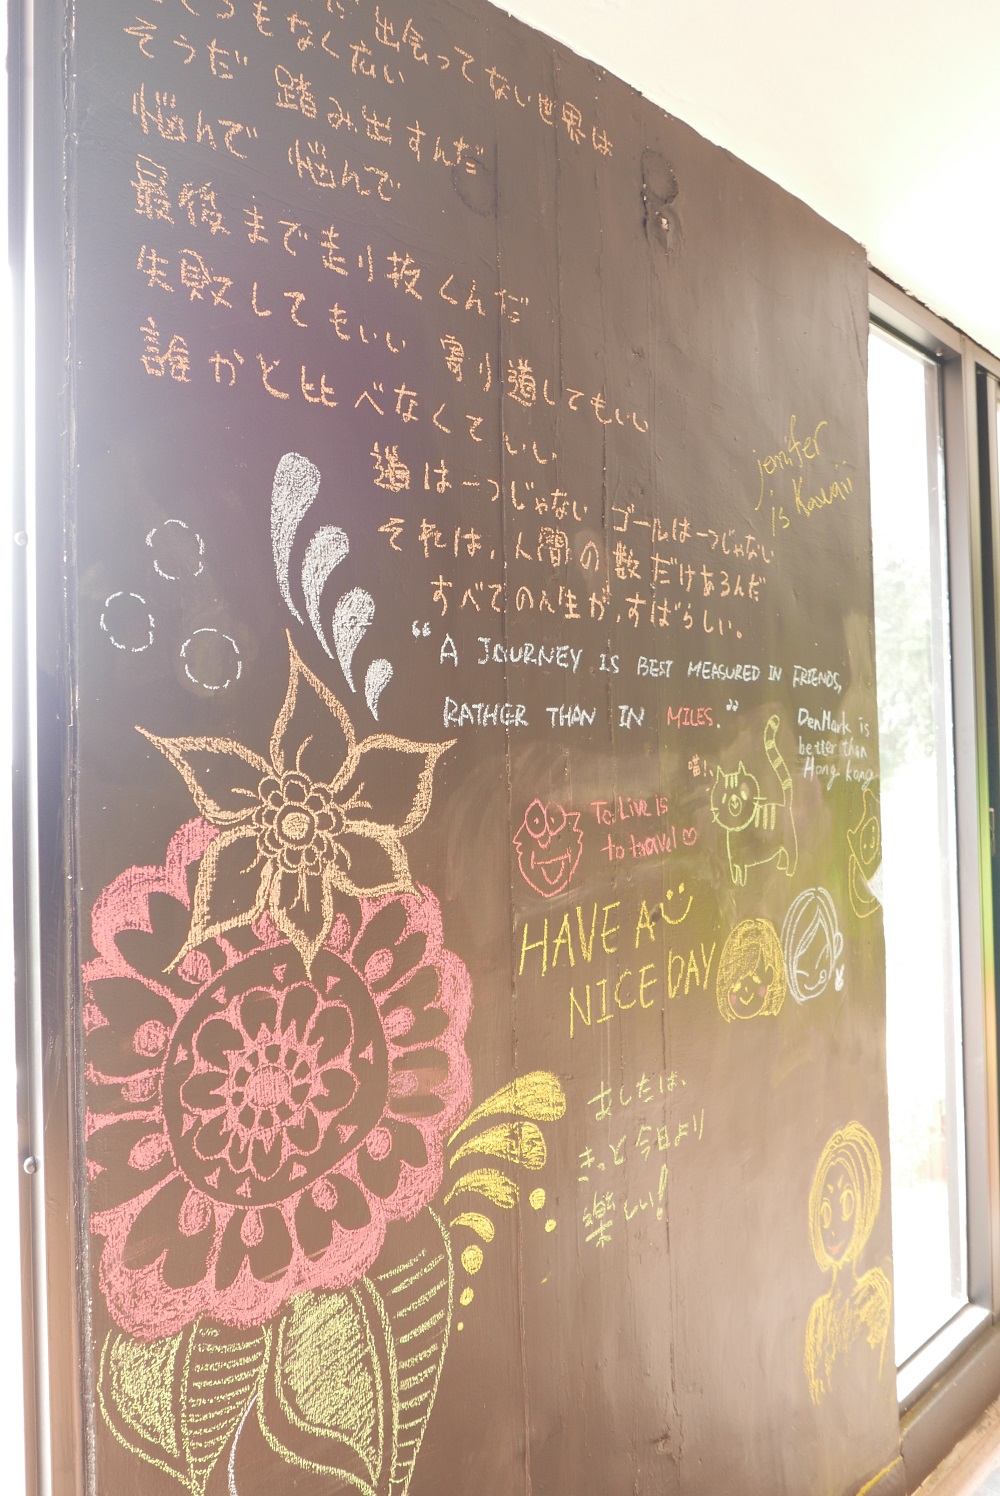 出会ってない世界は
とてつもなく広い
そうだ 踏み出すんだ
悩んで 悩んで
最後まで走り抜くんだ
失敗してもいい 寄り道してもいい
誰かと比べなくていい
道は一つじゃない ゴールは一つじゃない
それは、人間の数だけあるんだ
すべての人生が、すばらしい。
jennifer
is Kawaii
“A JOURNEY IS BEST MEASURED IN FRIENDS,
RATHER THAN IN MILES.”
DenMark is
better than
Hong kong
喵!
To Live is
to travel
HAVE A
NICE DAY
あしたは、
きっと今日より
楽しい!